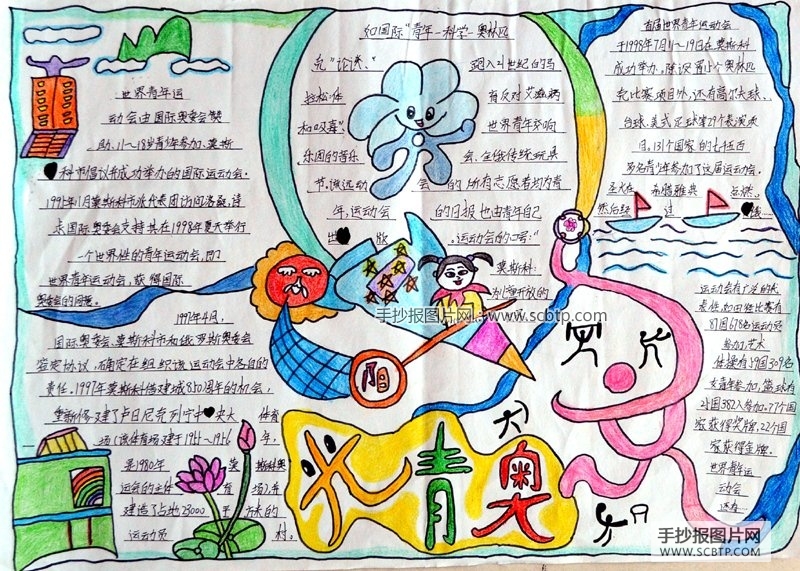 世界青年运
动会由国际奥委会赞
助、11～18岁青少年参加、莫斯
科市倡议并成功举办的国际运动会.
点国际奥委会支持其在1998年夏天举行
一个世界性的青年运动会,即
世界青年运动会,获得国际
奥委会的同意.
1997年4月,
国际奥委会、莫斯科市和俄罗斯奥委会
签定协议,确定在组织该运动会中各自的
责任.1997年莫斯科借建城850周年的机会,
重新修建了卢日尼克列宁中央大体育
是1980年莫斯科奥
建造了占地23000平方米的
运动员村。
如国际"青年—科学—奥林匹
克"论谈、"跑入21世纪的马
拉松"、体育反对艾滋病
和吸毒"、世界青年交响
乐团的音乐会、全俄传统玩具
节.该运动会的所有志愿者均为青
年,运动会的日报也由青年自己
出版.运动会的口号:"
莫斯科:
为心灵开放的
首届世界青年运动会
于1998年7月11～19日在莫斯科
成功举办,除设置15个奥林匹
克比赛项目外,还有高尔夫球、
台球、美式足球等7个表演项
目,131个国家的七千五百
多名青少年参加了这届运动会.
圣火在希腊雅典点燃,
然后经过
运动会有广泛的代
表性,如田径比赛有
87国678名运动员
参加,艺术
体操有39国309名
女青年参加,篮球有
24国382人参加.77个国
家获得奖牌,22个国
家获得金牌.
世界青年运
动会
阳
火青奥
手抄报图片网 www.scbtp.com
手抄报图片网
WWW.SCBTP.COM